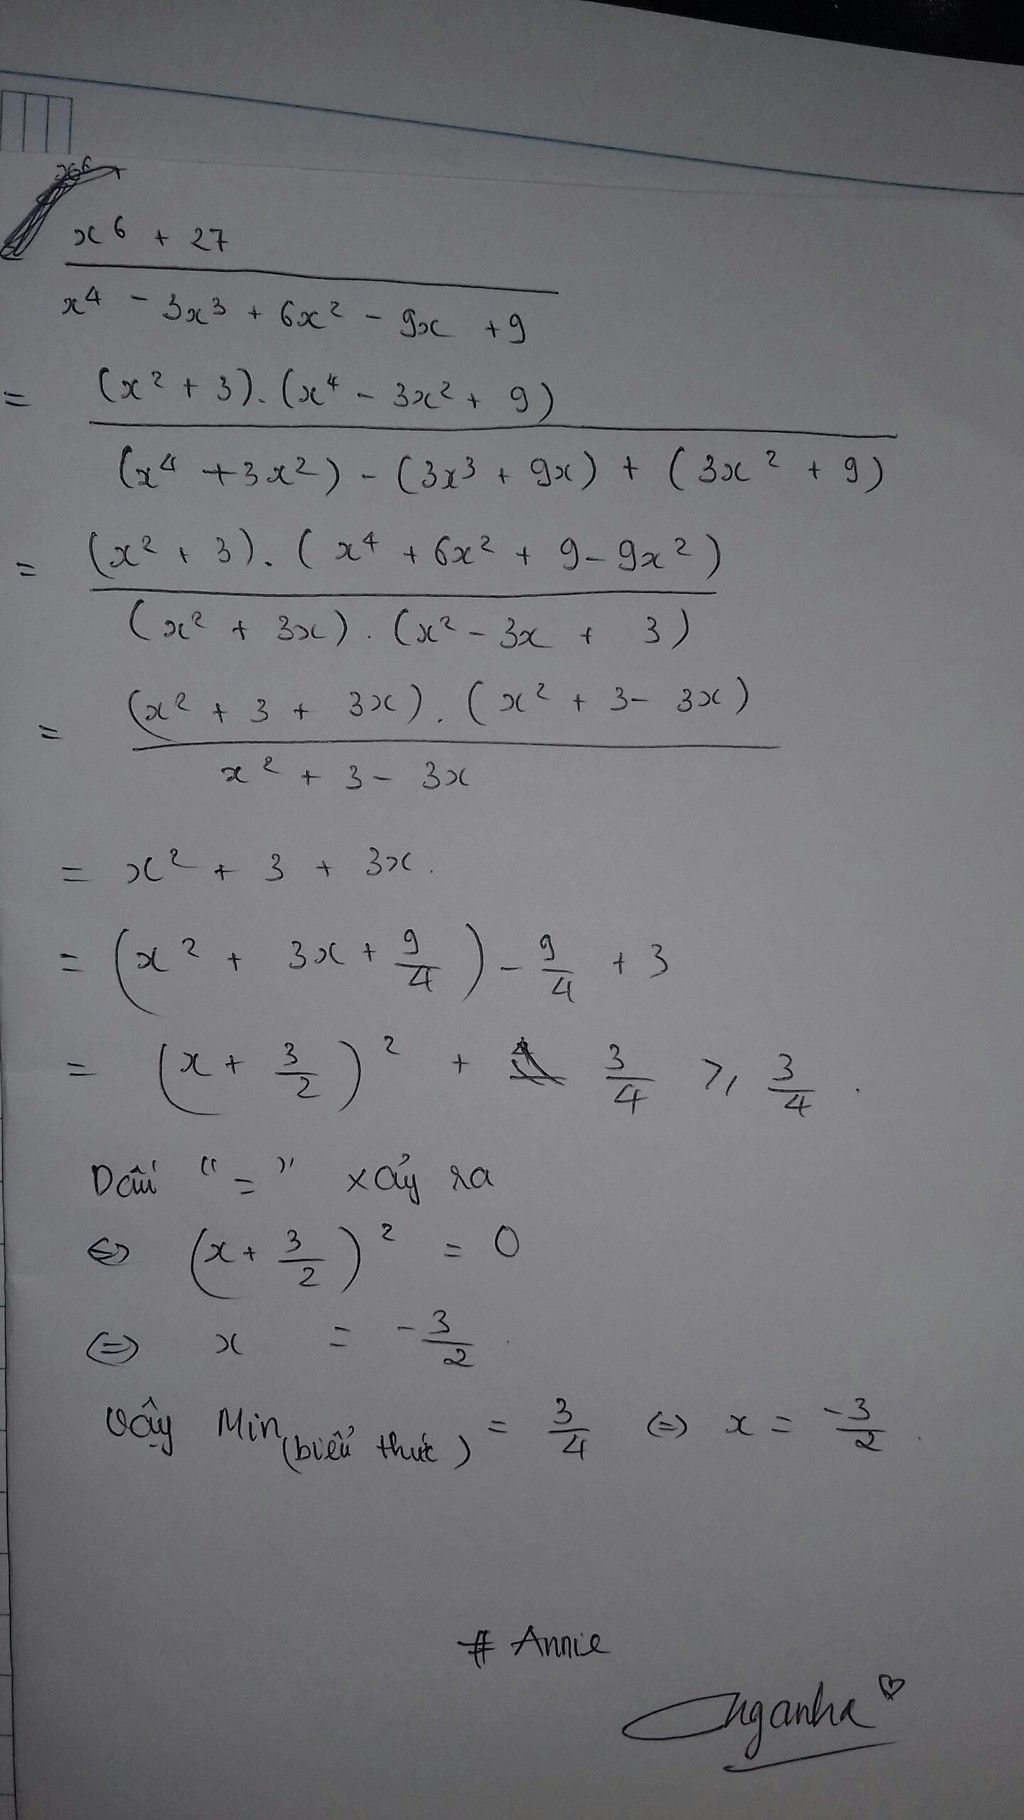 x⁶ + 27
x⁴ - 3x³ + 6x² - 9x + 9
= (x² + 3).(x⁴ - 3x² + 9)
(x⁴ + 3x²) - (3x³ + 9x) + (3x² + 9)
= (x² + 3).(x⁴ + 6x² + 9 - 9x²)
(x² + 3x).(x² - 3x + 3)
= (x² + 3 + 3x).(x² + 3 - 3x)
x² + 3 - 3x
= x² + 3 + 3x.
= (x² + 3x + 9/4) - 9/4 + 3
= (x + 3/2)² + 3/4 ≥ 3/4.
Dấu "=" xảy ra
⇔ (x + 3/2)² = 0
⇔ x = -3/2.
Vậy Min (biểu thức) = 3/4 ⇔ x = -3/2.
# Annie